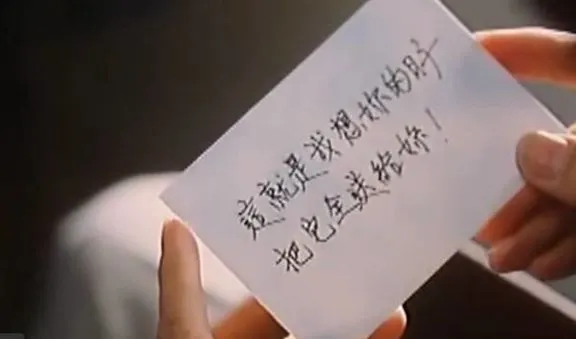 這就是我想妳的時
把它全送給妳！